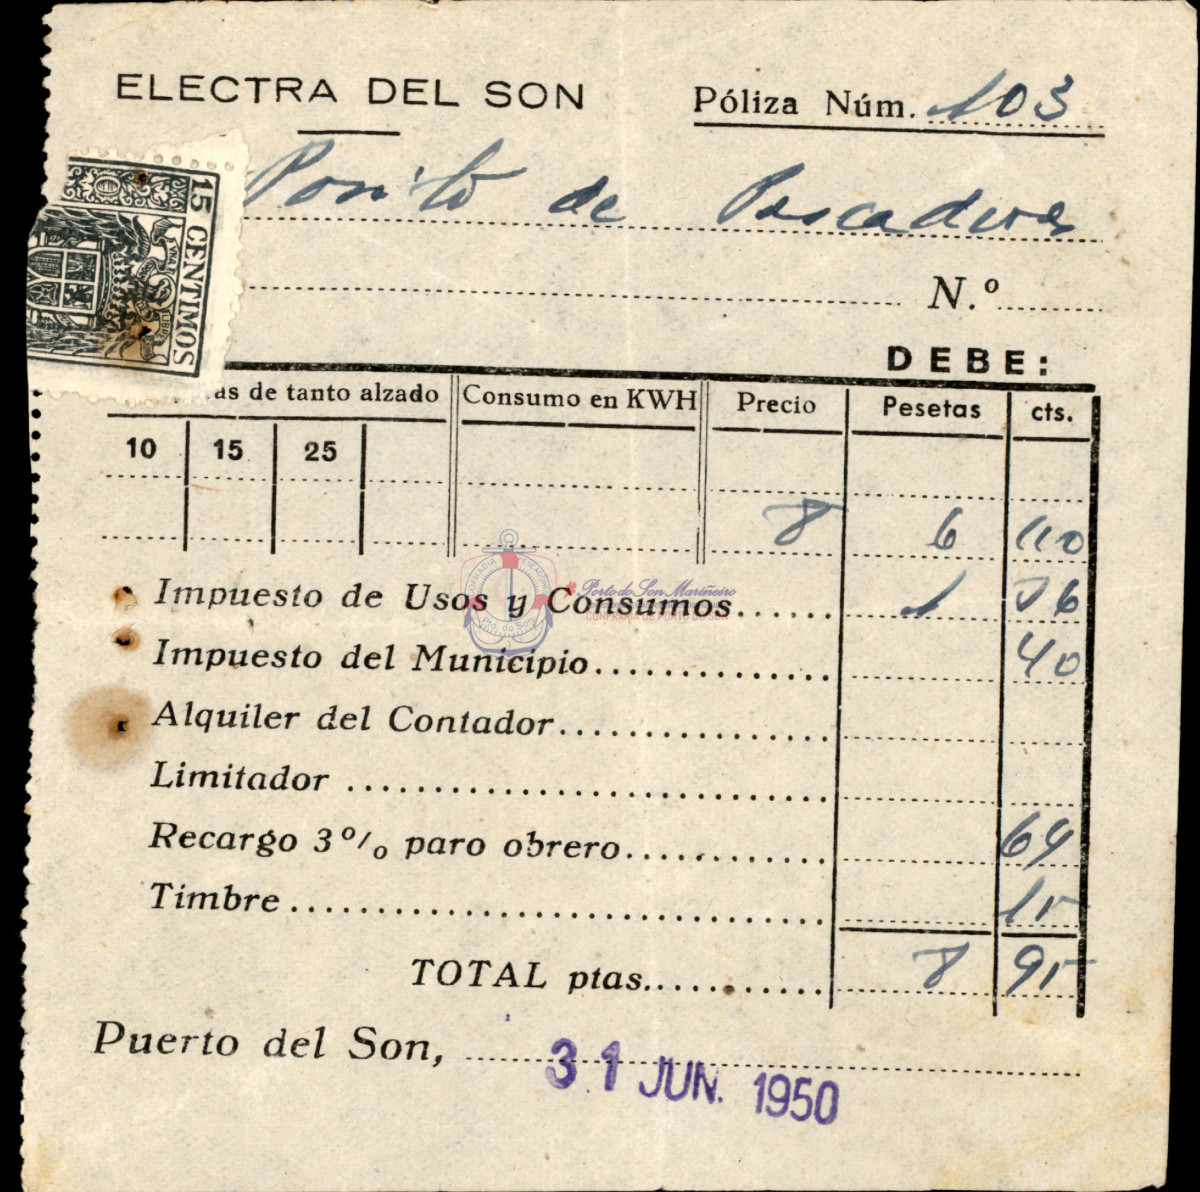 ELECTRA DEL SON
Póliza Núm. 103
Posito de Pescadores
15 CENTIMOS
N.º
DEBE:
as de tanto alzado Consumo en KWH Precio Pesetas cts.
10 15 25
8 6 00
Impuesto de Usos y Consumos 1 76
Impuesto del Municipio 40
Alquiler del Contador
Limitador
Recargo 3 º/o paro obrero 64
Timbre 15
TOTAL ptas. 8 95
Puerto del Son, 31 JUN. 1950
Porto do Son Mariñeiro
CONFRARÍA DE PORTO DO SON